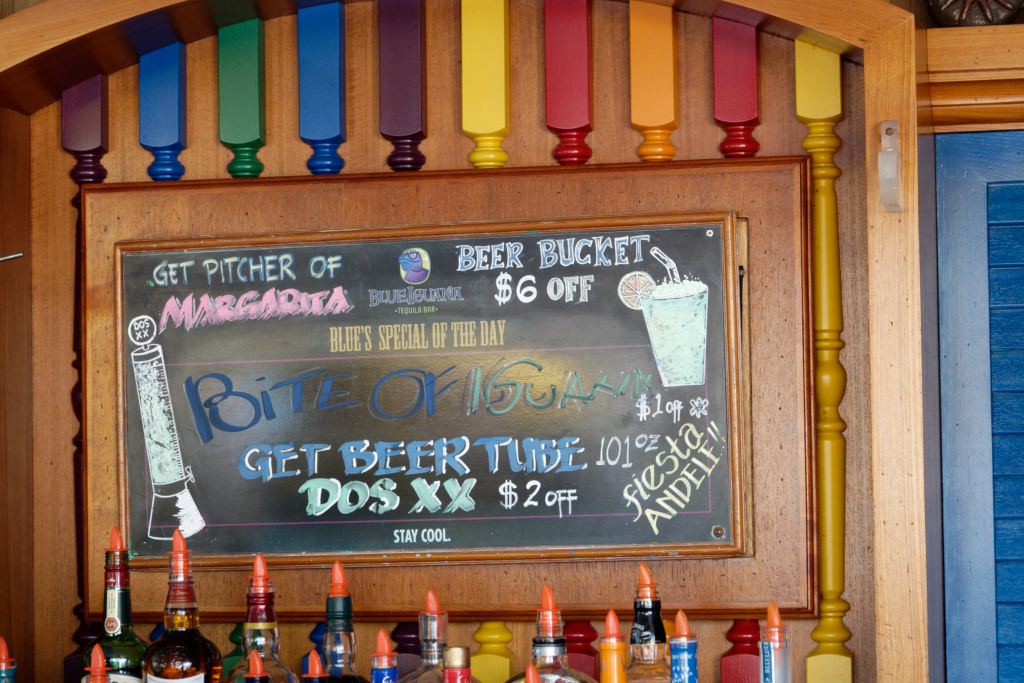 GET PITCHER OF
MARGARITA
BLUE IGUANA
• TEQUILA BAR •
BEER BUCKET
$6 OFF
BLUE'S SPECIAL OF THE DAY
DOS
XX
BITE OF IGUANA
$1 off
GET BEER TUBE 101 oz
DOS XX $2 OFF
fiesta
ANDELE!!
STAY COOL.